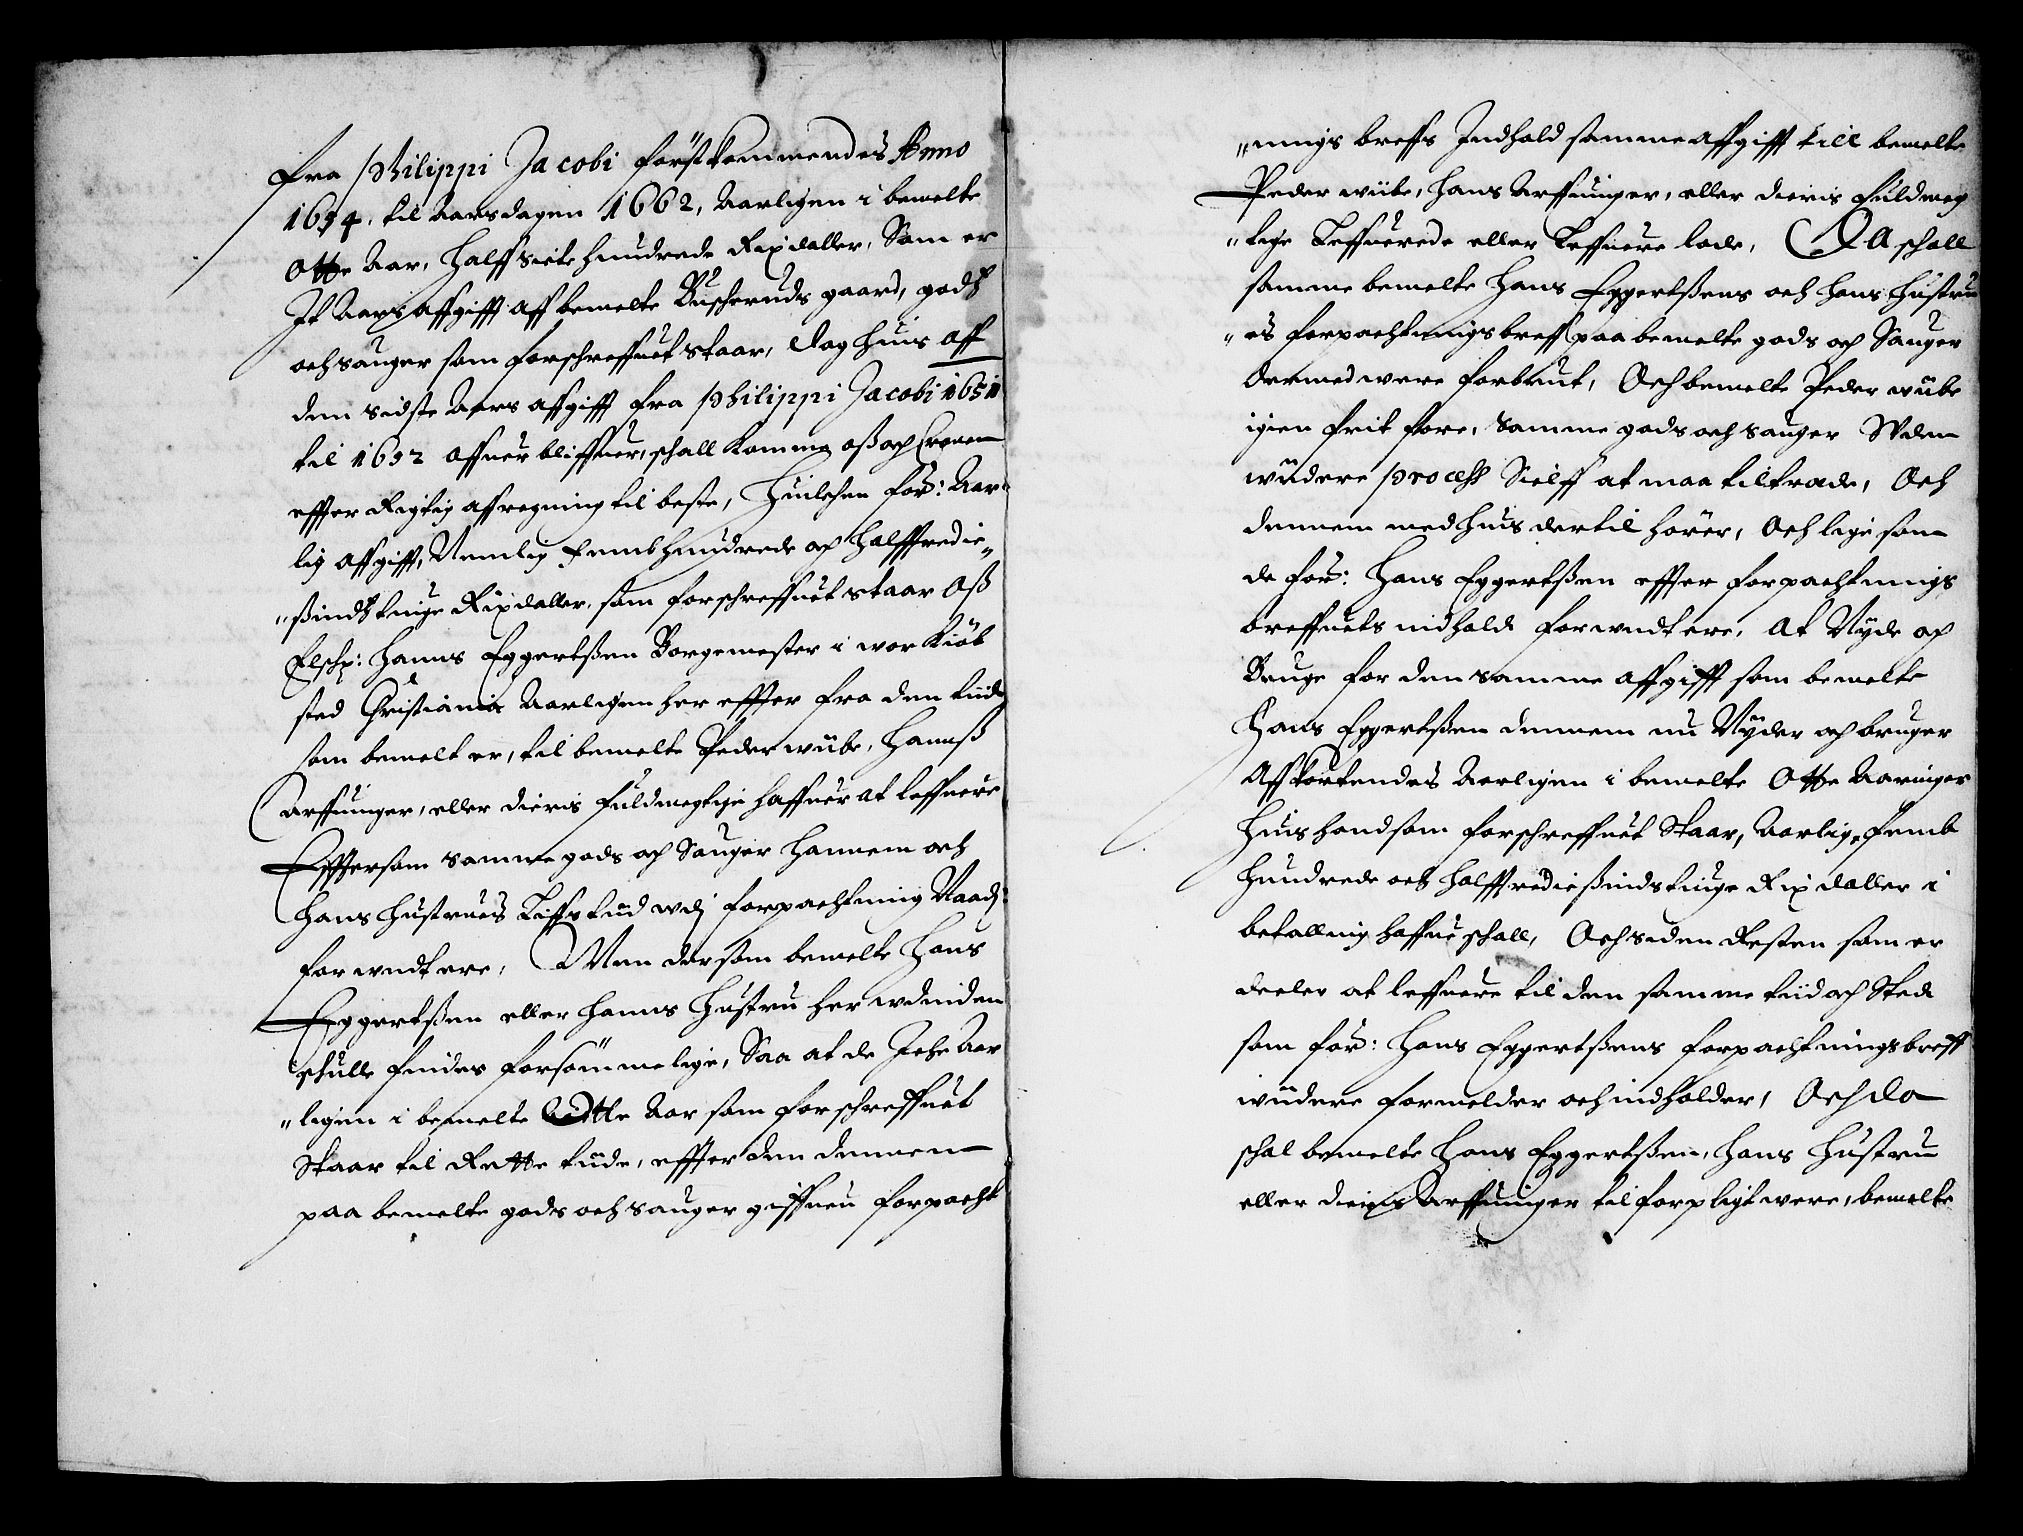 fra Philippi Jacobi förstkommendes Anno
1654. til Aarsdagen 1662, Aarligen i bemelte
Otte Aar, Halffsiete hundrede Rixdaller, Som er
It Aars affgifft aff bemelte Buscheruds gaard, gods
och sauger som forschreffuet staar, dog huis aff
dem sidste Aars affgifft fra Philippi Jacobi 1651
til 1652 offuer bliffuer, schall komme oß och Cronen
effter Rigtig affregning til beste, Huilchen for: Aar-
lig affgifft, Nemlig femb hundrede och halfftredie„
„ßindstiuge Rixdaller, som forschreffuet staar Oß
Elsch: Hanns Eggertßen Borgemester i wor Kiöb
sted Christiania Aarligen her effter fra den tiid
som bemelt er, til bemelte Peder wibe, Hannß
Arffuinger, eller dieris fuldmegtige haffuer at leffuere
Efftersom samme gods och Sauger hannem och
Hans Hustrues Liffs tiid wdj forpachtning Naad:
forwndt ere, Men dersom bemelte Hans
Eggertßen eller Hanns Hustru her wdmiden
schulle findes forsömmelige, Saa at de Iche Aar
„ligen i bemelte Otte Aar som forschreffuet
Staar til Rette tiide, effter den dennem
paa bemelte gods och sauger giffuen forpacht
„nings breffs Indhold samme affgifft till bemelte
Peder wibe, Hans Arffuinger, eller dieris fuldmeg
„tige Leffuerede eller Leffuere lode, DA schall
samme bemelte Hans Eggertßens och Hans Hustru
„es forpachtnings breff paa bemelte gods och Sauger
dermed were forbrut, Och bemelte Peder wibe
igien frit fore, Samme gods och sauger Vden
wiidere process Sielff at maa tiltræde, Och
dennem med huis dertil hörer, Och lige som
de for: Hans Eggertßen effter forpachtnings
breffuets indhold forwndt ere, At Nyde och
Bruge for den samme affgifft som bemelte
Hans Eggertßen dennem nu Nyder och bruger
Affkortendes Aarligen i bemelte Otte Aaringer
Huis hand som forschreffuet Staar, Aarlig femb
Hundrede och halfftredießindstiuge Rix daller i
betalling haffue schall, Och siden Resten som er
deeler at leffuere til den samme tiid och Sted
som for: Hans Eggertßens forpachtningsbreff
wiidere formelder och indholder, Och da
schal bemelte Hans Eggertßen, Hans Hustru
eller dieris Arffuinger tilforpligt were, bemelte